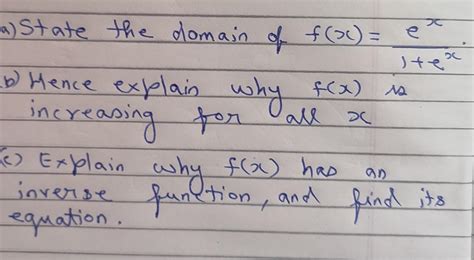 a) State the domain of f(x) = e^x / 1+e^x .
b) Hence explain why f(x) is
increasing for all x
c) Explain why f(x) has an
inverse function, and find its
equation.